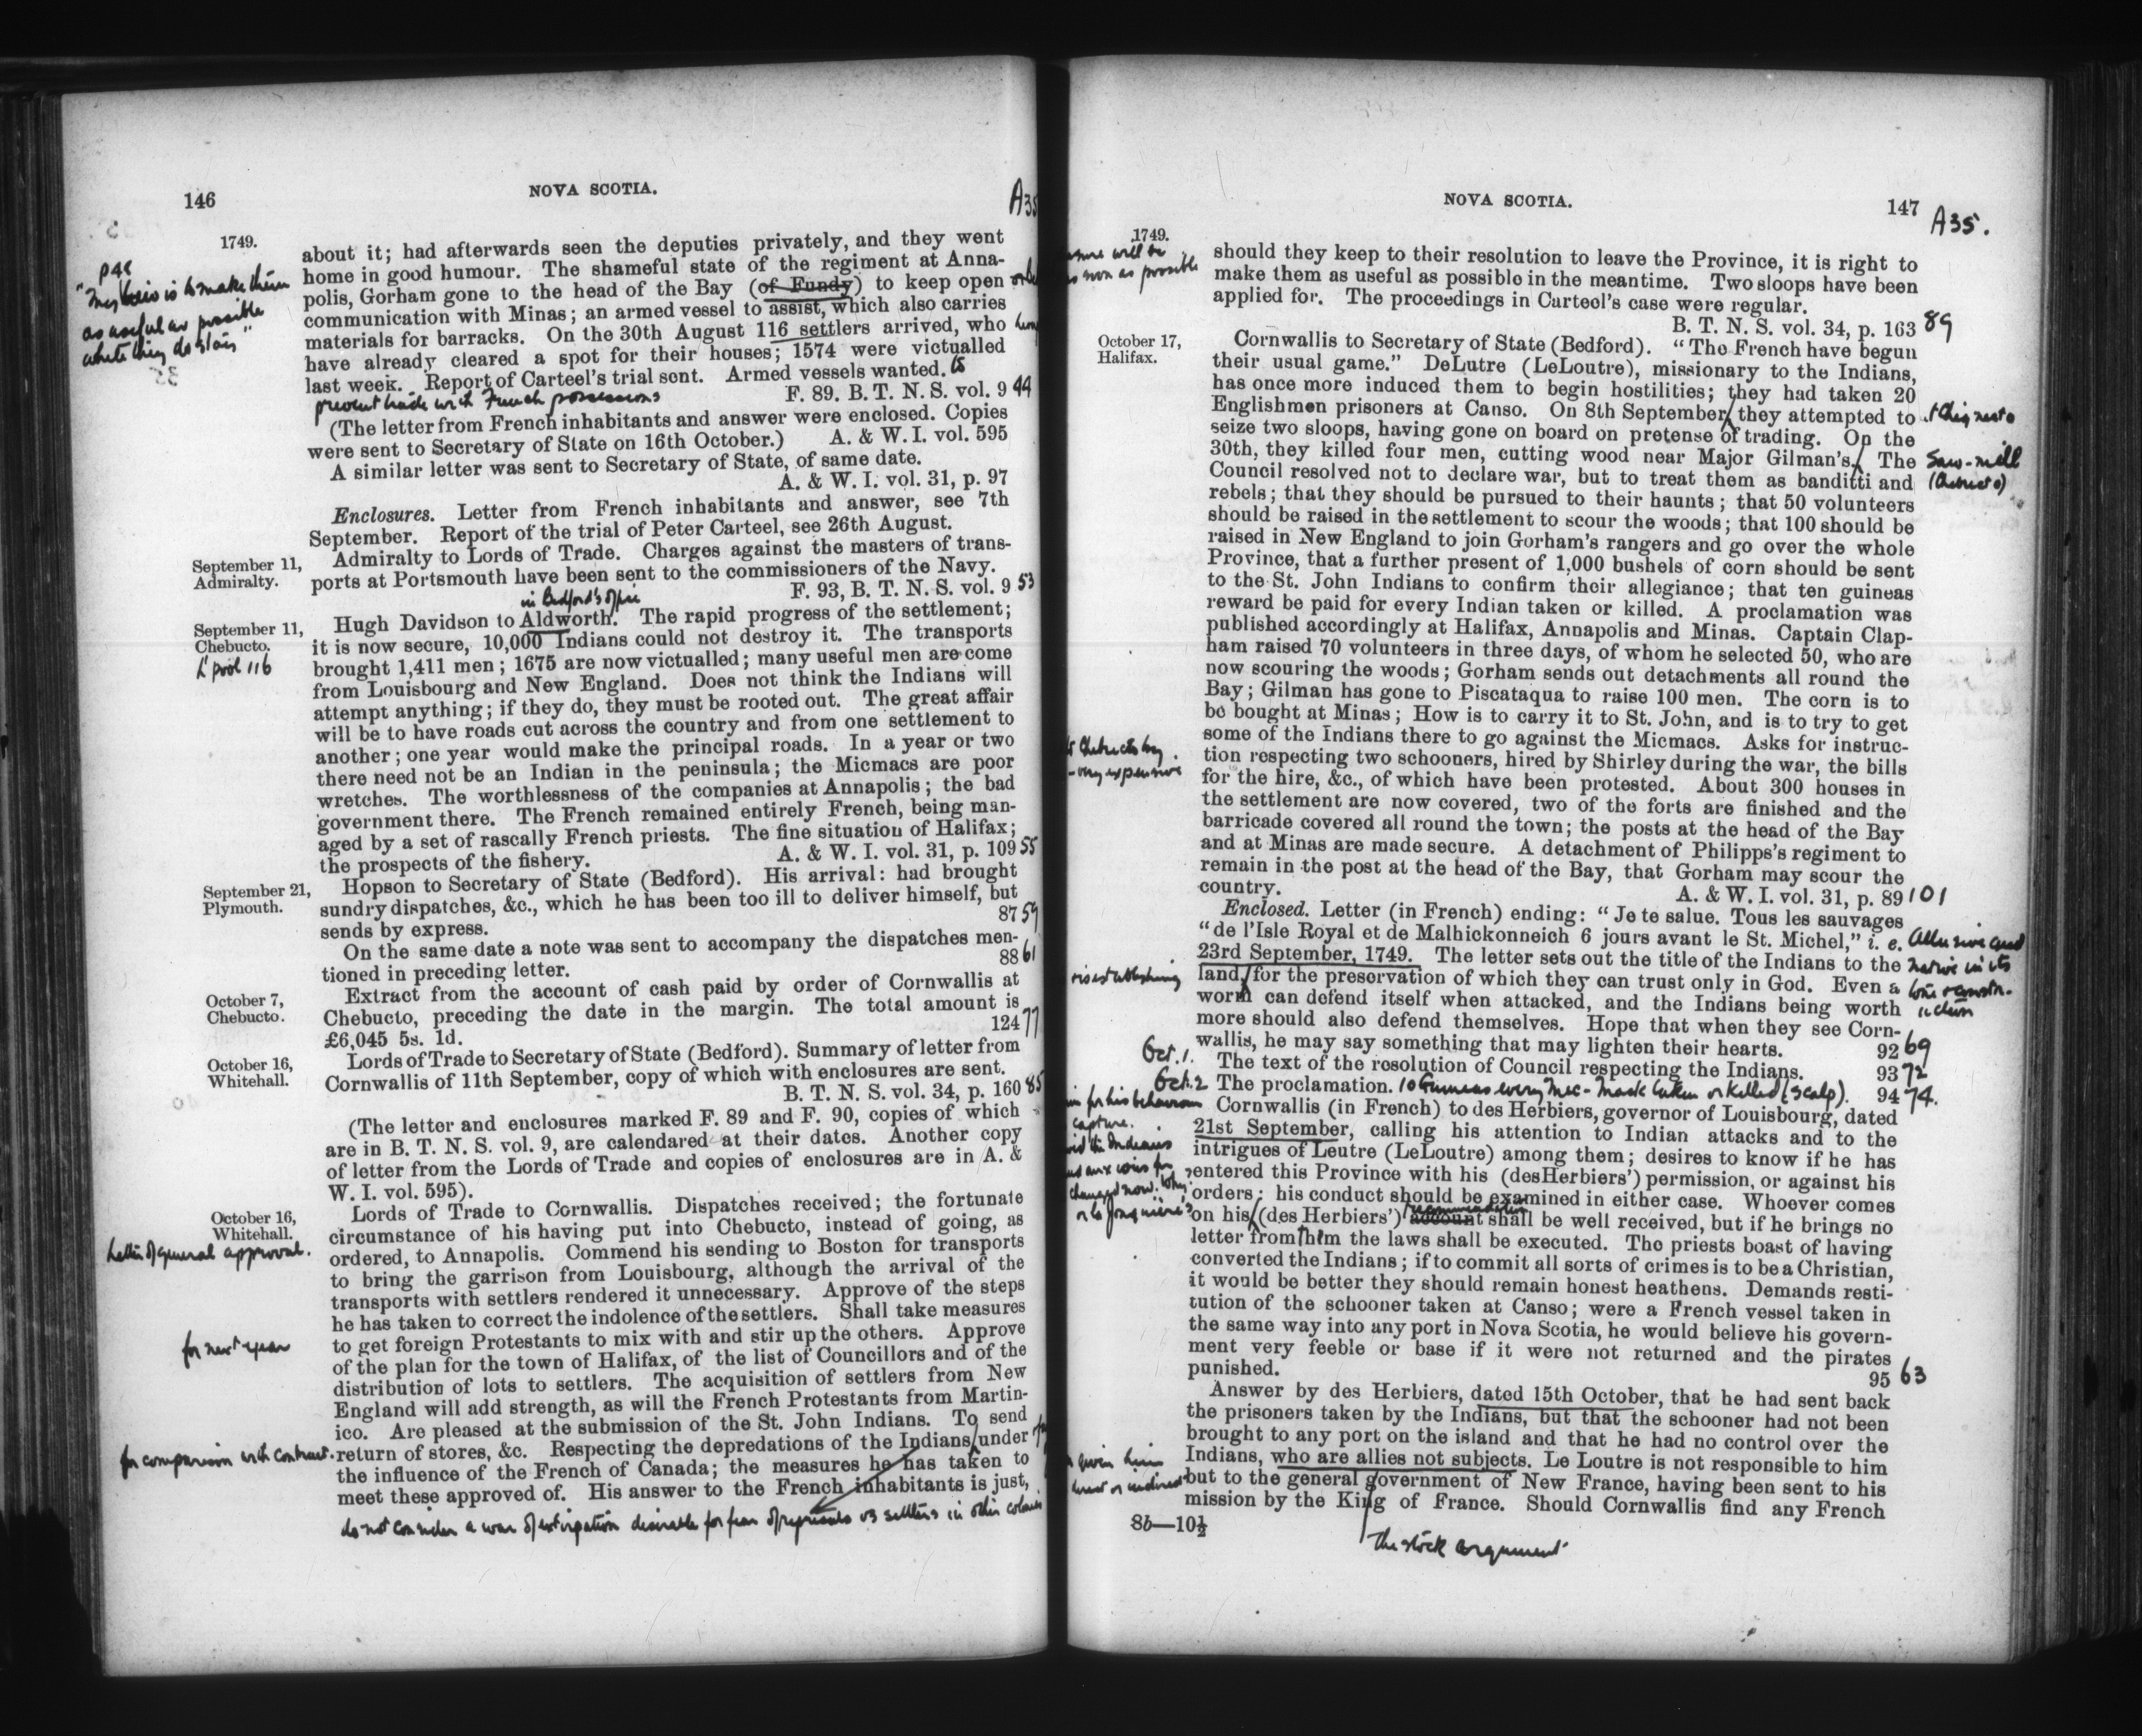 146
NOVA SCOTIA.
A35
1749.
about it; had afterwards seen the deputies privately, and they went
home in good humour. The shameful state of the regiment at Anna-
polis, Gorham gone to the head of the Bay (of Fundy) to keep open
communication with Minas; an armed vessel to assist, which also carries
materials for barracks. On the 30th August 116 settlers arrived, who
have already cleared a spot for their houses; 1574 were victualled
last week. Report of Carteel's trial sent. Armed vessels wanted. to
prevent trade with French possessions
F. 89. B. T. N. S. vol. 9 44
p 48
is to make them
as useful as possible
while they do stay"
(The letter from French inhabitants and answer were enclosed. Copies
were sent to Secretary of State on 16th October.) A. & W. I. vol. 595
A similar letter was sent to Secretary of State, of same date.
A. & W. I. vol. 31, p. 97
Enclosures. Letter from French inhabitants and answer, see 7th
September. Report of the trial of Peter Carteel, see 26th August.
September 11,
Admiralty.
Admiralty to Lords of Trade. Charges against the masters of trans-
ports at Portsmouth have been sent to the commissioners of the Navy.
F. 93, B. T. N. S. vol. 9 53
in Bedford's office
September 11,
Chebucto.
L'pool 116
Hugh Davidson to Aldworth. The rapid progress of the settlement;
it is now secure, 10,000 Indians could not destroy it. The transports
brought 1,411 men; 1675 are now victualled; many useful men are come
from Louisbourg and New England. Does not think the Indians will
attempt anything; if they do, they must be rooted out. The great affair
will be to have roads cut across the country and from one settlement to
another; one year would make the principal roads. In a year or two
there need not be an Indian in the peninsula; the Micmacs are poor
wretches. The worthlessness of the companies at Annapolis; the bad
government there. The French remained entirely French, being man-
aged by a set of rascally French priests. The fine situation of Halifax;
the prospects of the fishery. A. & W. I. vol. 31, p. 109 55
September 21,
Plymouth.
Hopson to Secretary of State (Bedford). His arrival: had brought
sundry dispatches, &c., which he has been too ill to deliver himself, but
sends by express. 87 59
On the same date a note was sent to accompany the dispatches men-
tioned in preceding letter. 88 61
October 7,
Chebucto.
Extract from the account of cash paid by order of Cornwallis at
Chebucto, preceding the date in the margin. The total amount is
£6,045 5s. 1d. 124 77
October 16,
Whitehall.
Lords of Trade to Secretary of State (Bedford). Summary of letter from
Cornwallis of 11th September, copy of which with enclosures are sent.
B. T. N. S. vol. 34, p. 160 85
(The letter and enclosures marked F. 89 and F. 90, copies of which
are in B. T. N. S. vol. 9, are calendared at their dates. Another copy
of letter from the Lords of Trade and copies of enclosures are in A. &
W. I. vol. 595).
October 16,
Whitehall.
Letter of general approval.
Lords of Trade to Cornwallis. Dispatches received; the fortunate
circumstance of his having put into Chebucto, instead of going, as
ordered, to Annapolis. Commend his sending to Boston for transports
to bring the garrison from Louisbourg, although the arrival of the
transports with settlers rendered it unnecessary. Approve of the steps
he has taken to correct the indolence of the settlers. Shall take measures
to get foreign Protestants to mix with and stir up the others. Approve
for next year
of the plan for the town of Halifax, of the list of Councillors and of the
distribution of lots to settlers. The acquisition of settlers from New
England will add strength, as will the French Protestants from Martin-
ico. Are pleased at the submission of the St. John Indians. To send
return of stores, &c. Respecting the depredations of the Indians under
for comparison with contract.
the influence of the French of Canada; the measures he has taken to
meet these approved of. His answer to the French inhabitants is just,
do not consider a war of extirpation desirable for fear of reprisals vs settlers in other colonies
NOVA SCOTIA.
147
A35.
1749.
will be
as soon as possible
should they keep to their resolution to leave the Province, it is right to
make them as useful as possible in the meantime. Two sloops have been
applied for. The proceedings in Carteel's case were regular.
B. T. N. S. vol. 34, p. 163 89
October 17,
Halifax.
Cornwallis to Secretary of State (Bedford). "The French have begun
their usual game." DeLutre (LeLoutre), missionary to the Indians,
has once more induced them to begin hostilities; they had taken 20
Englishmen prisoners at Canso. On 8th September they attempted to
at Chignecto
seize two sloops, having gone on board on pretense of trading. On the
30th, they killed four men, cutting wood near Major Gilman's. The
Saw-mill
(Chebucto)
Council resolved not to declare war, but to treat them as banditti and
rebels; that they should be pursued to their haunts; that 50 volunteers
should be raised in the settlement to scour the woods; that 100 should be
raised in New England to join Gorham's rangers and go over the whole
Province, that a further present of 1,000 bushels of corn should be sent
to the St. John Indians to confirm their allegiance; that ten guineas
reward be paid for every Indian taken or killed. A proclamation was
published accordingly at Halifax, Annapolis and Minas. Captain Clap-
ham raised 70 volunteers in three days, of whom he selected 50, who are
now scouring the woods; Gorham sends out detachments all round the
Bay; Gilman has gone to Piscataqua to raise 100 men. The corn is to
be bought at Minas; How is to carry it to St. John, and is to try to get
some of the Indians there to go against the Micmacs. Asks for instruc-
tion respecting two schooners, hired by Shirley during the war, the bills
for the hire, &c., of which have been protested. About 300 houses in
- very expensive
the settlement are now covered, two of the forts are finished and the
barricade covered all round the town; the posts at the head of the Bay
and at Minas are made secure. A detachment of Philipps's regiment to
remain in the post at the head of the Bay, that Gorham may scour the
country. A. & W. I. vol. 31, p. 89 101
Enclosed. Letter (in French) ending: "Je te salue. Tous les sauvages
"de l'Isle Royal et de Malhickonneich 6 jours avant le St. Michel," i. e.
23rd September, 1749. The letter sets out the title of the Indians to the
Allusive and
native in its
tone &
land, for the preservation of which they can trust only in God. Even a
establishing
worm can defend itself when attacked, and the Indians being worth
more should also defend themselves. Hope that when they see Corn-
wallis, he may say something that may lighten their hearts. 92 69
Oct. 1. The text of the resolution of Council respecting the Indians. 93 72
Oct. 2 The proclamation. 10 Guineas every Mic-Mack taken or killed (scalp). 94 74.
for his behaviour
capture.
the Indians
changed now. Why
or la Jonquière's
Cornwallis (in French) to des Herbiers, governor of Louisbourg, dated
21st September, calling his attention to Indian attacks and to the
intrigues of Leutre (LeLoutre) among them; desires to know if he has
entered this Province with his (desHerbiers') permission, or against his
orders; his conduct should be examined in either case. Whoever comes
recommendation
on his (des Herbiers') account shall be well received, but if he brings no
letter from him the laws shall be executed. The priests boast of having
converted the Indians; if to commit all sorts of crimes is to be a Christian,
it would be better they should remain honest heathens. Demands resti-
tution of the schooner taken at Canso; were a French vessel taken in
the same way into any port in Nova Scotia, he would believe his govern-
ment very feeble or base if it were not returned and the pirates
punished. 95 63
Answer by des Herbiers, dated 15th October, that he had sent back
the prisoners taken by the Indians, but that the schooner had not been
brought to any port on the island and that he had no control over the
Indians, who are allies not subjects. Le Loutre is not responsible to him
given him
direct or indirect
but to the general government of New France, having been sent to his
mission by the King of France. Should Cornwallis find any French
8b—10½
The stock argument